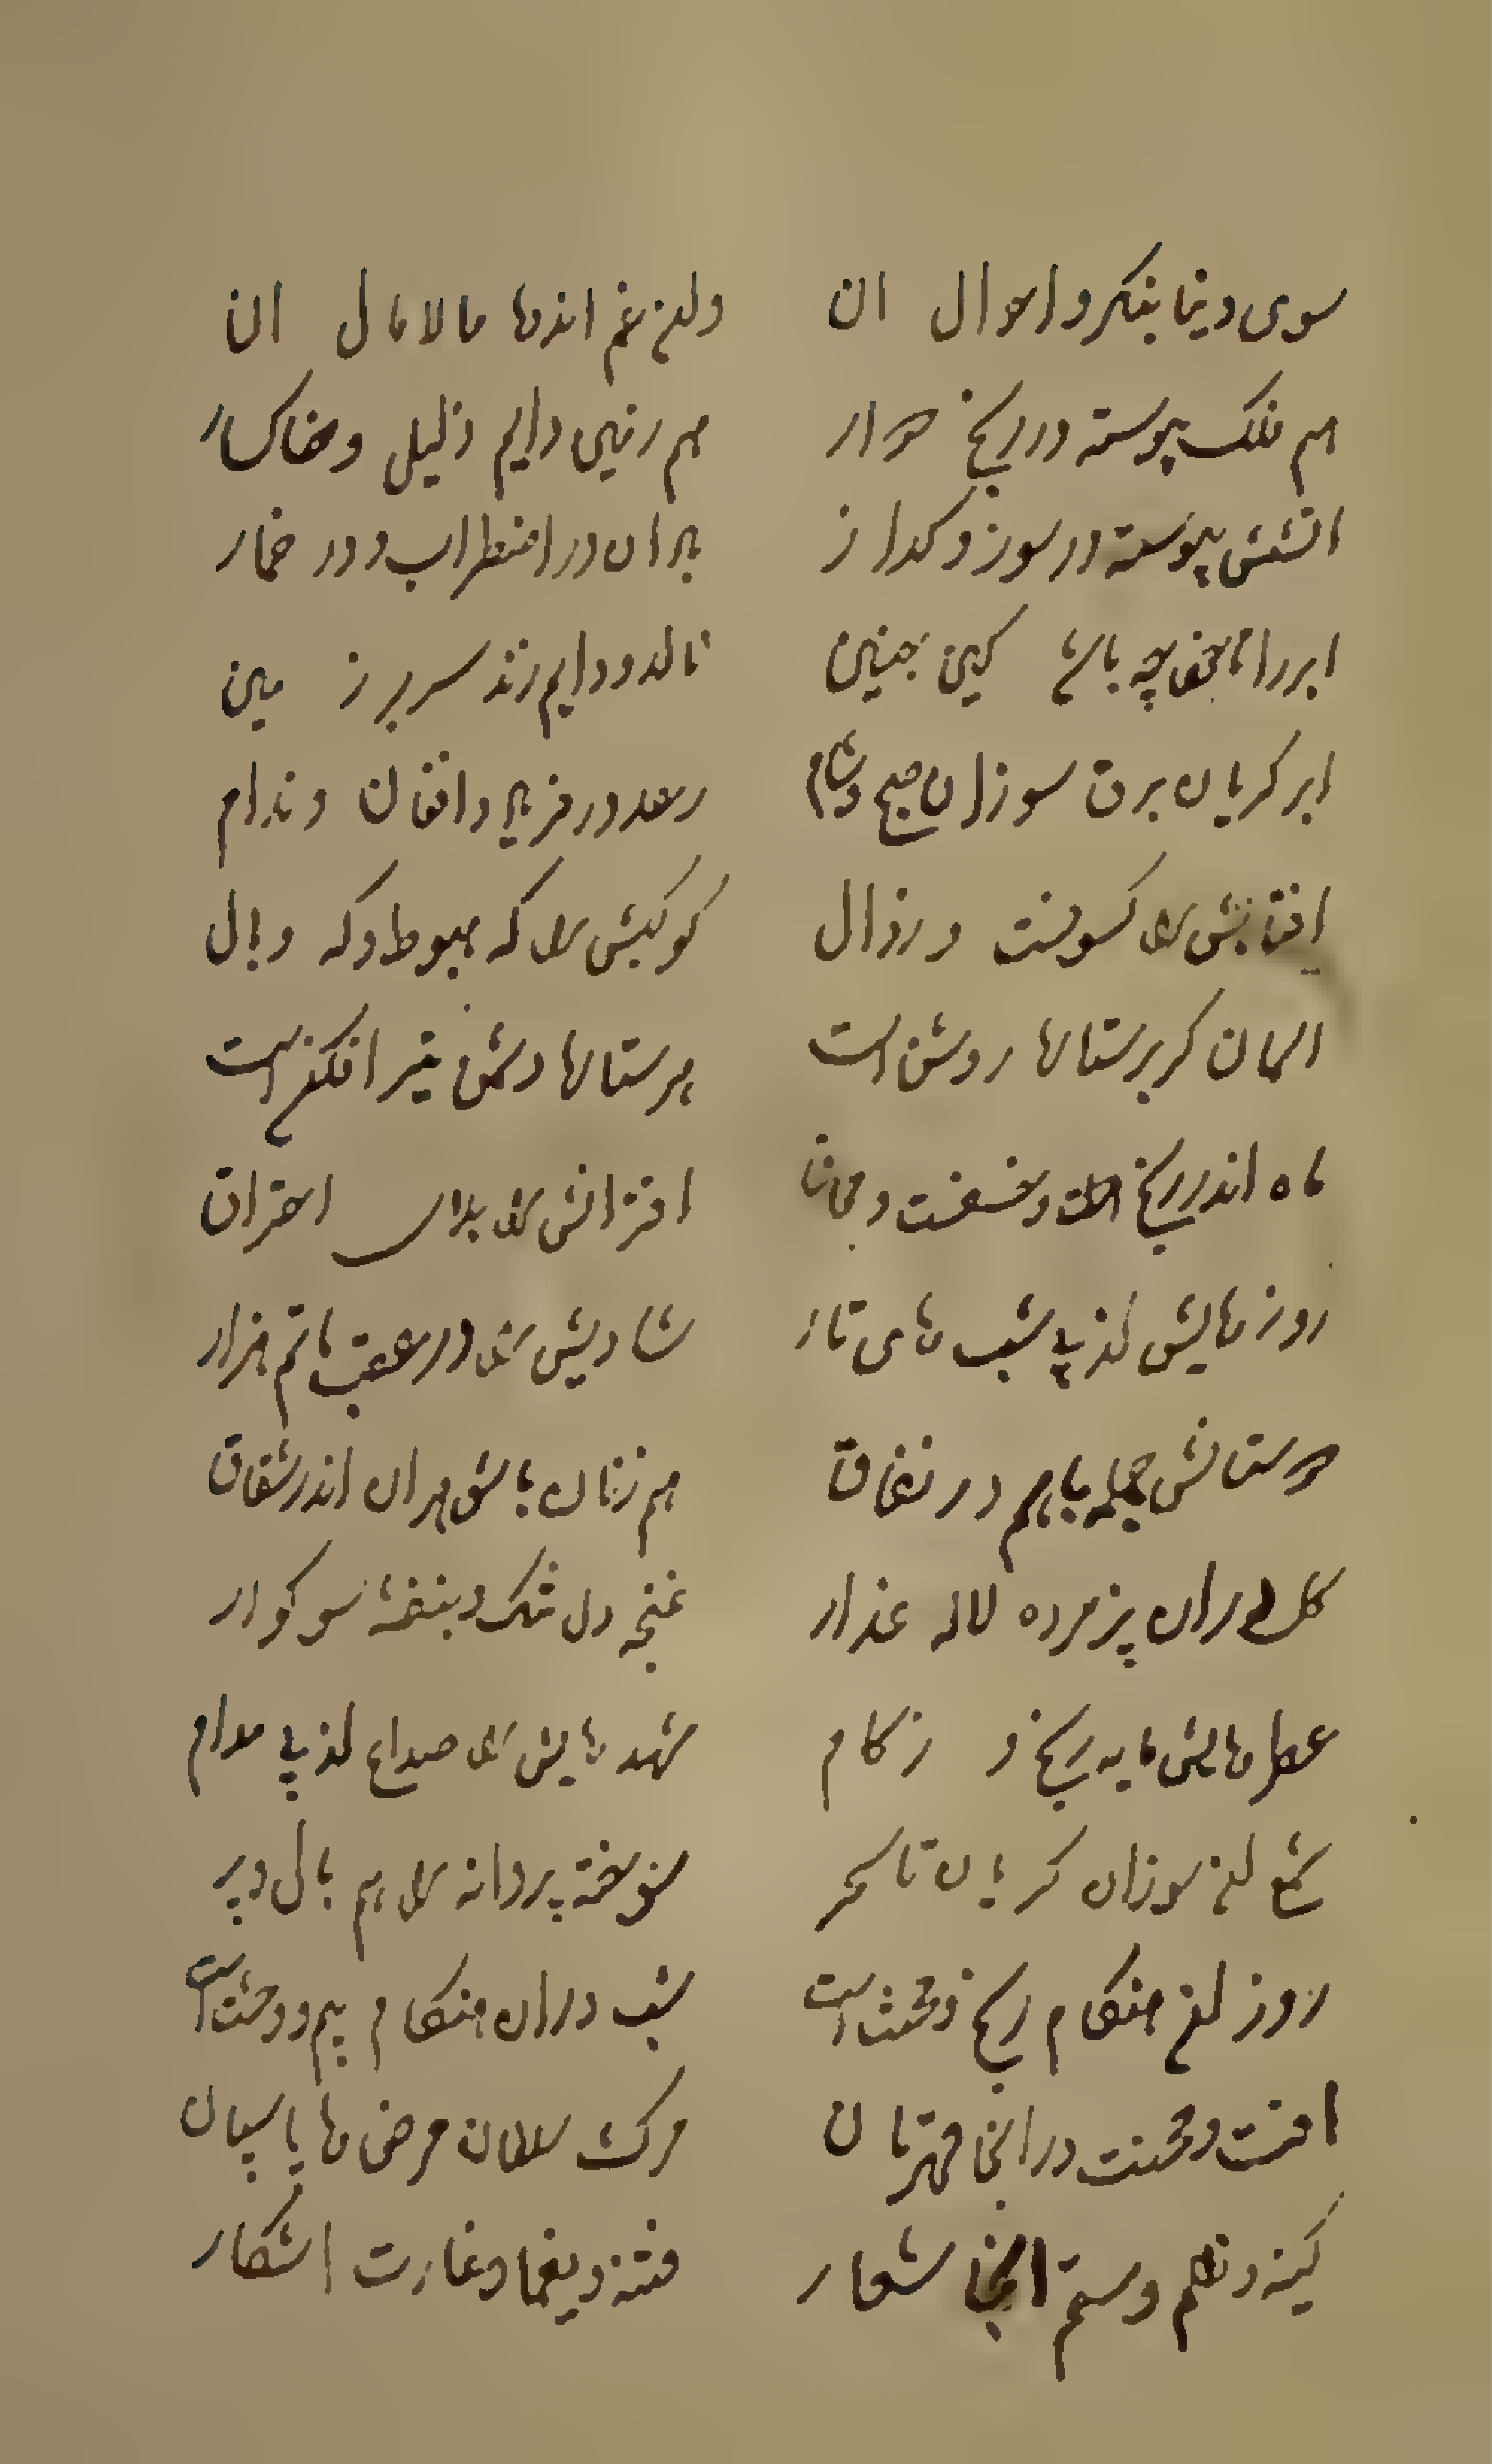 سوی دنیا بنکر و احوال ان
ولین غم اندها مالامال ان
هم فلک پیوسته در رنج دوار
هم زمین دایم ذلیل و خاکسار
اتشش پیوسته در سوز و کداز
در اضطراب و در خمار
ابر را ناحق چه باشی کین چنین
نالد و دایم زند سر بر زمین
ابر کریان برق سوزان صبح و شام
رعد در فریاد و افغان و ندام
افتابش را کسوفست و زوال
کوکبش را که هبوط و که وبال
اسمان کر برستارها روشن است
هر ستارها دشمن تیر افکن است
ماه اندر رنج است و خسفست و محاق
اخترانش را بلای احتراق
روزهایش از پی شبهای تار
شادیش را در عقب ماتم هزار
دوستانش جمله باهم در نفاق
هم زنان با شوهران اندر شقاق
کل در ان پژمرده لاله عذار
غنچه دل تنک و بنفشه سوکوار
عطرهایش مایه رنج و زکام
شهدهایش را صداع از پی مدام
شمع این سوزان کریان تا سحر
سوخته پروانه را هم بال و پر
روز این هنکام رنج و محنت است
شب در ان هنکام بیم و وحشت است
افت و محنت در انجا قهرمان
مرک سلطان مرضها پاسبان
کینه و ظلم و ستم انجا شعار
فتنه و یغما و غارت اشکار